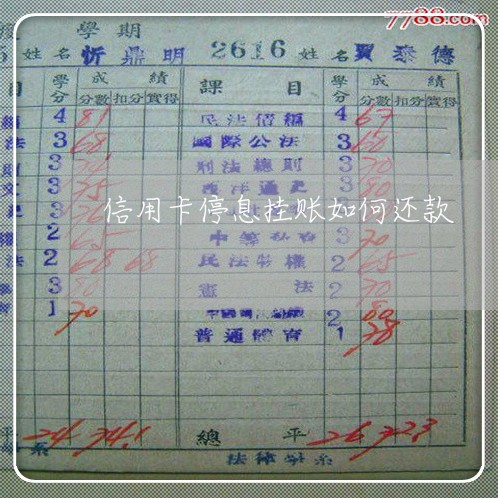 7788.com
學期
姓名 忻鼎明 2616 姓名 賈泰德
目 學分 成績 課目 學分 成績
分數 扣分 實得 分數 扣分 實得
4 81 民法債編 4 67
法 3 68 國際公法 3 60
則 3 刑法總則 3 70
3 75 西洋通史 3 80
3
信用卡停息挂账如何还款
2 65 3 70
法 2 68 68 民法物權 2 65
3 80 憲法 2 70
1 70 2 80
普通體育 1 78
平 24 74.1 總平 26 72.3
系 法律學系